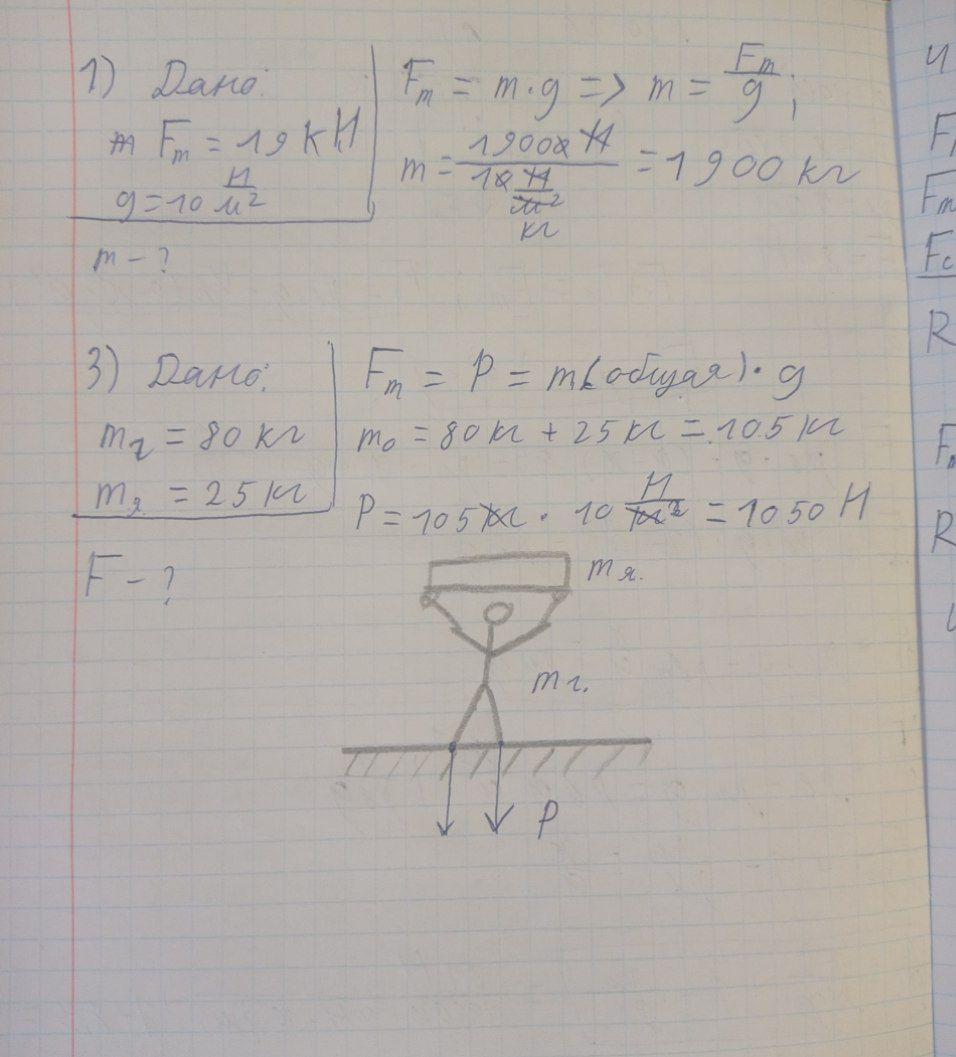 1) Дано:
Fт = 19 кН
g = 10 Н/м²
m - ?
Fт = m · g => m = Fт/g;
m = 19000 Н / 10 Н/м² кг = 1900 кг
3) Дано:
mч = 80 кг
mя. = 25 кг
F - ?
Fт = P = m(общая) · g
mо = 80 кг + 25 кг = 105 кг
P = 105 кг · 10 Н/м² = 1050 Н
mя.
mч.
P
Ч
F
Fт
Fс
R
F
R